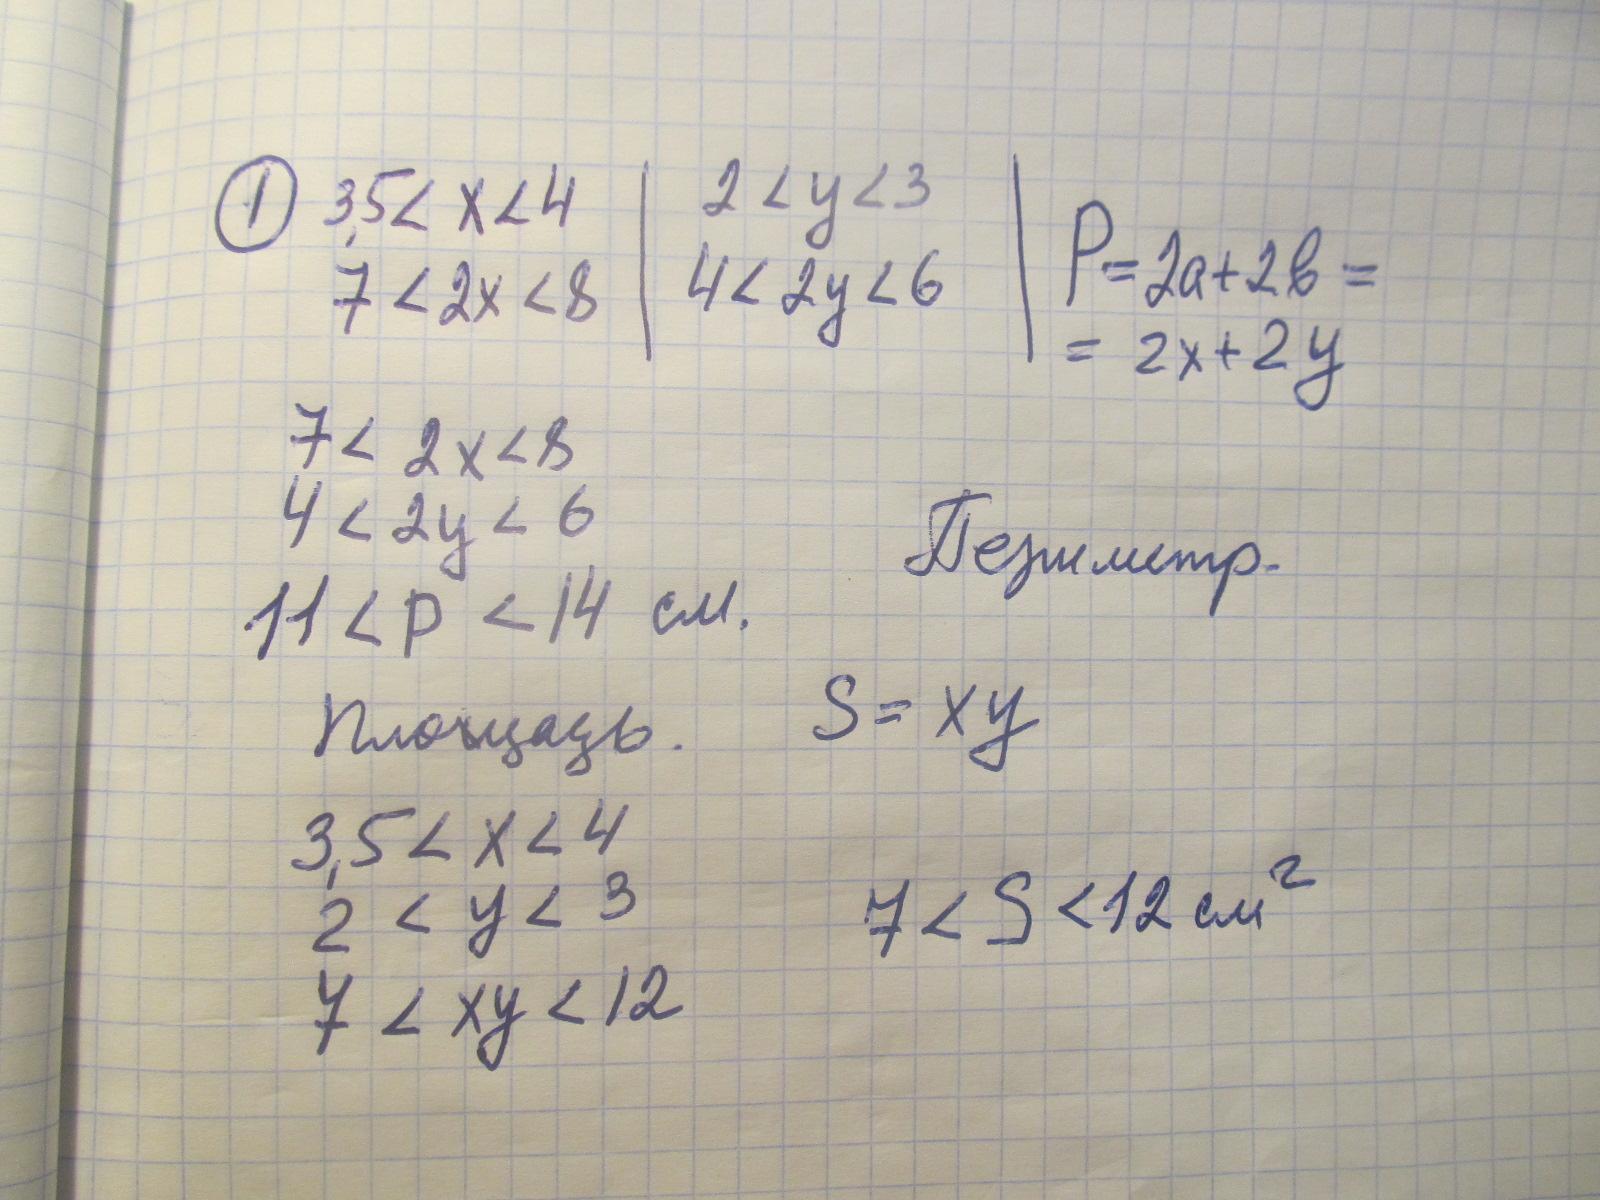 1 3,5 < x < 4 | 2 < y < 3 |
7 < 2x < 8 | 4 < 2y < 6 | P = 2a + 2b =
= 2x + 2y
7 < 2x < 8
4 < 2y < 6
Периметр.
11 < P < 14 см.
Площадь. S = xy
3,5 < x < 4
2 < y < 3
7 < S < 12 см²
7 < xy < 12